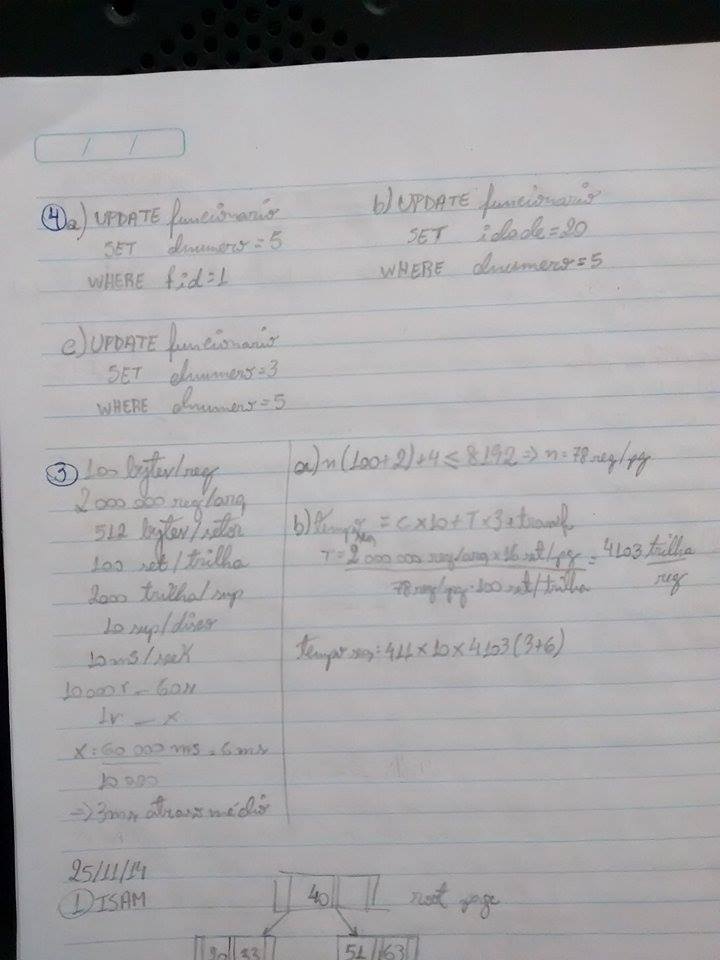 / /
4 a) UPDATE funcionario
SET dnumero=5
WHERE fid=1
b) UPDATE funcionario
SET idade=20
WHERE dnumero=5
c) UPDATE funcionario
SET dnumero=3
WHERE dnumero=5
3 100 bytes/reg
2 000 000 reg/arq
512 bytes/setor
100 set/trilha
2000 trilha/sup
10 sup/disco
10ms/seek
10 000r — 60s
1r — x
x = 60 000 ms = 6ms
10 000
=> 3ms atraso médio
a) n(100+2)+4 ≤ 8192 => n=78 reg/pg
b) tempo = C×10+T×3+transf
T = 2 000 000 reg/arq × 16 set/pg = 4103 trilha
78 reg/pg · 100 set/trilha reg
tempo seq: 411×10×4103(3+6)
25/11/14
1 ISAM
40 root page
20 33 51 63